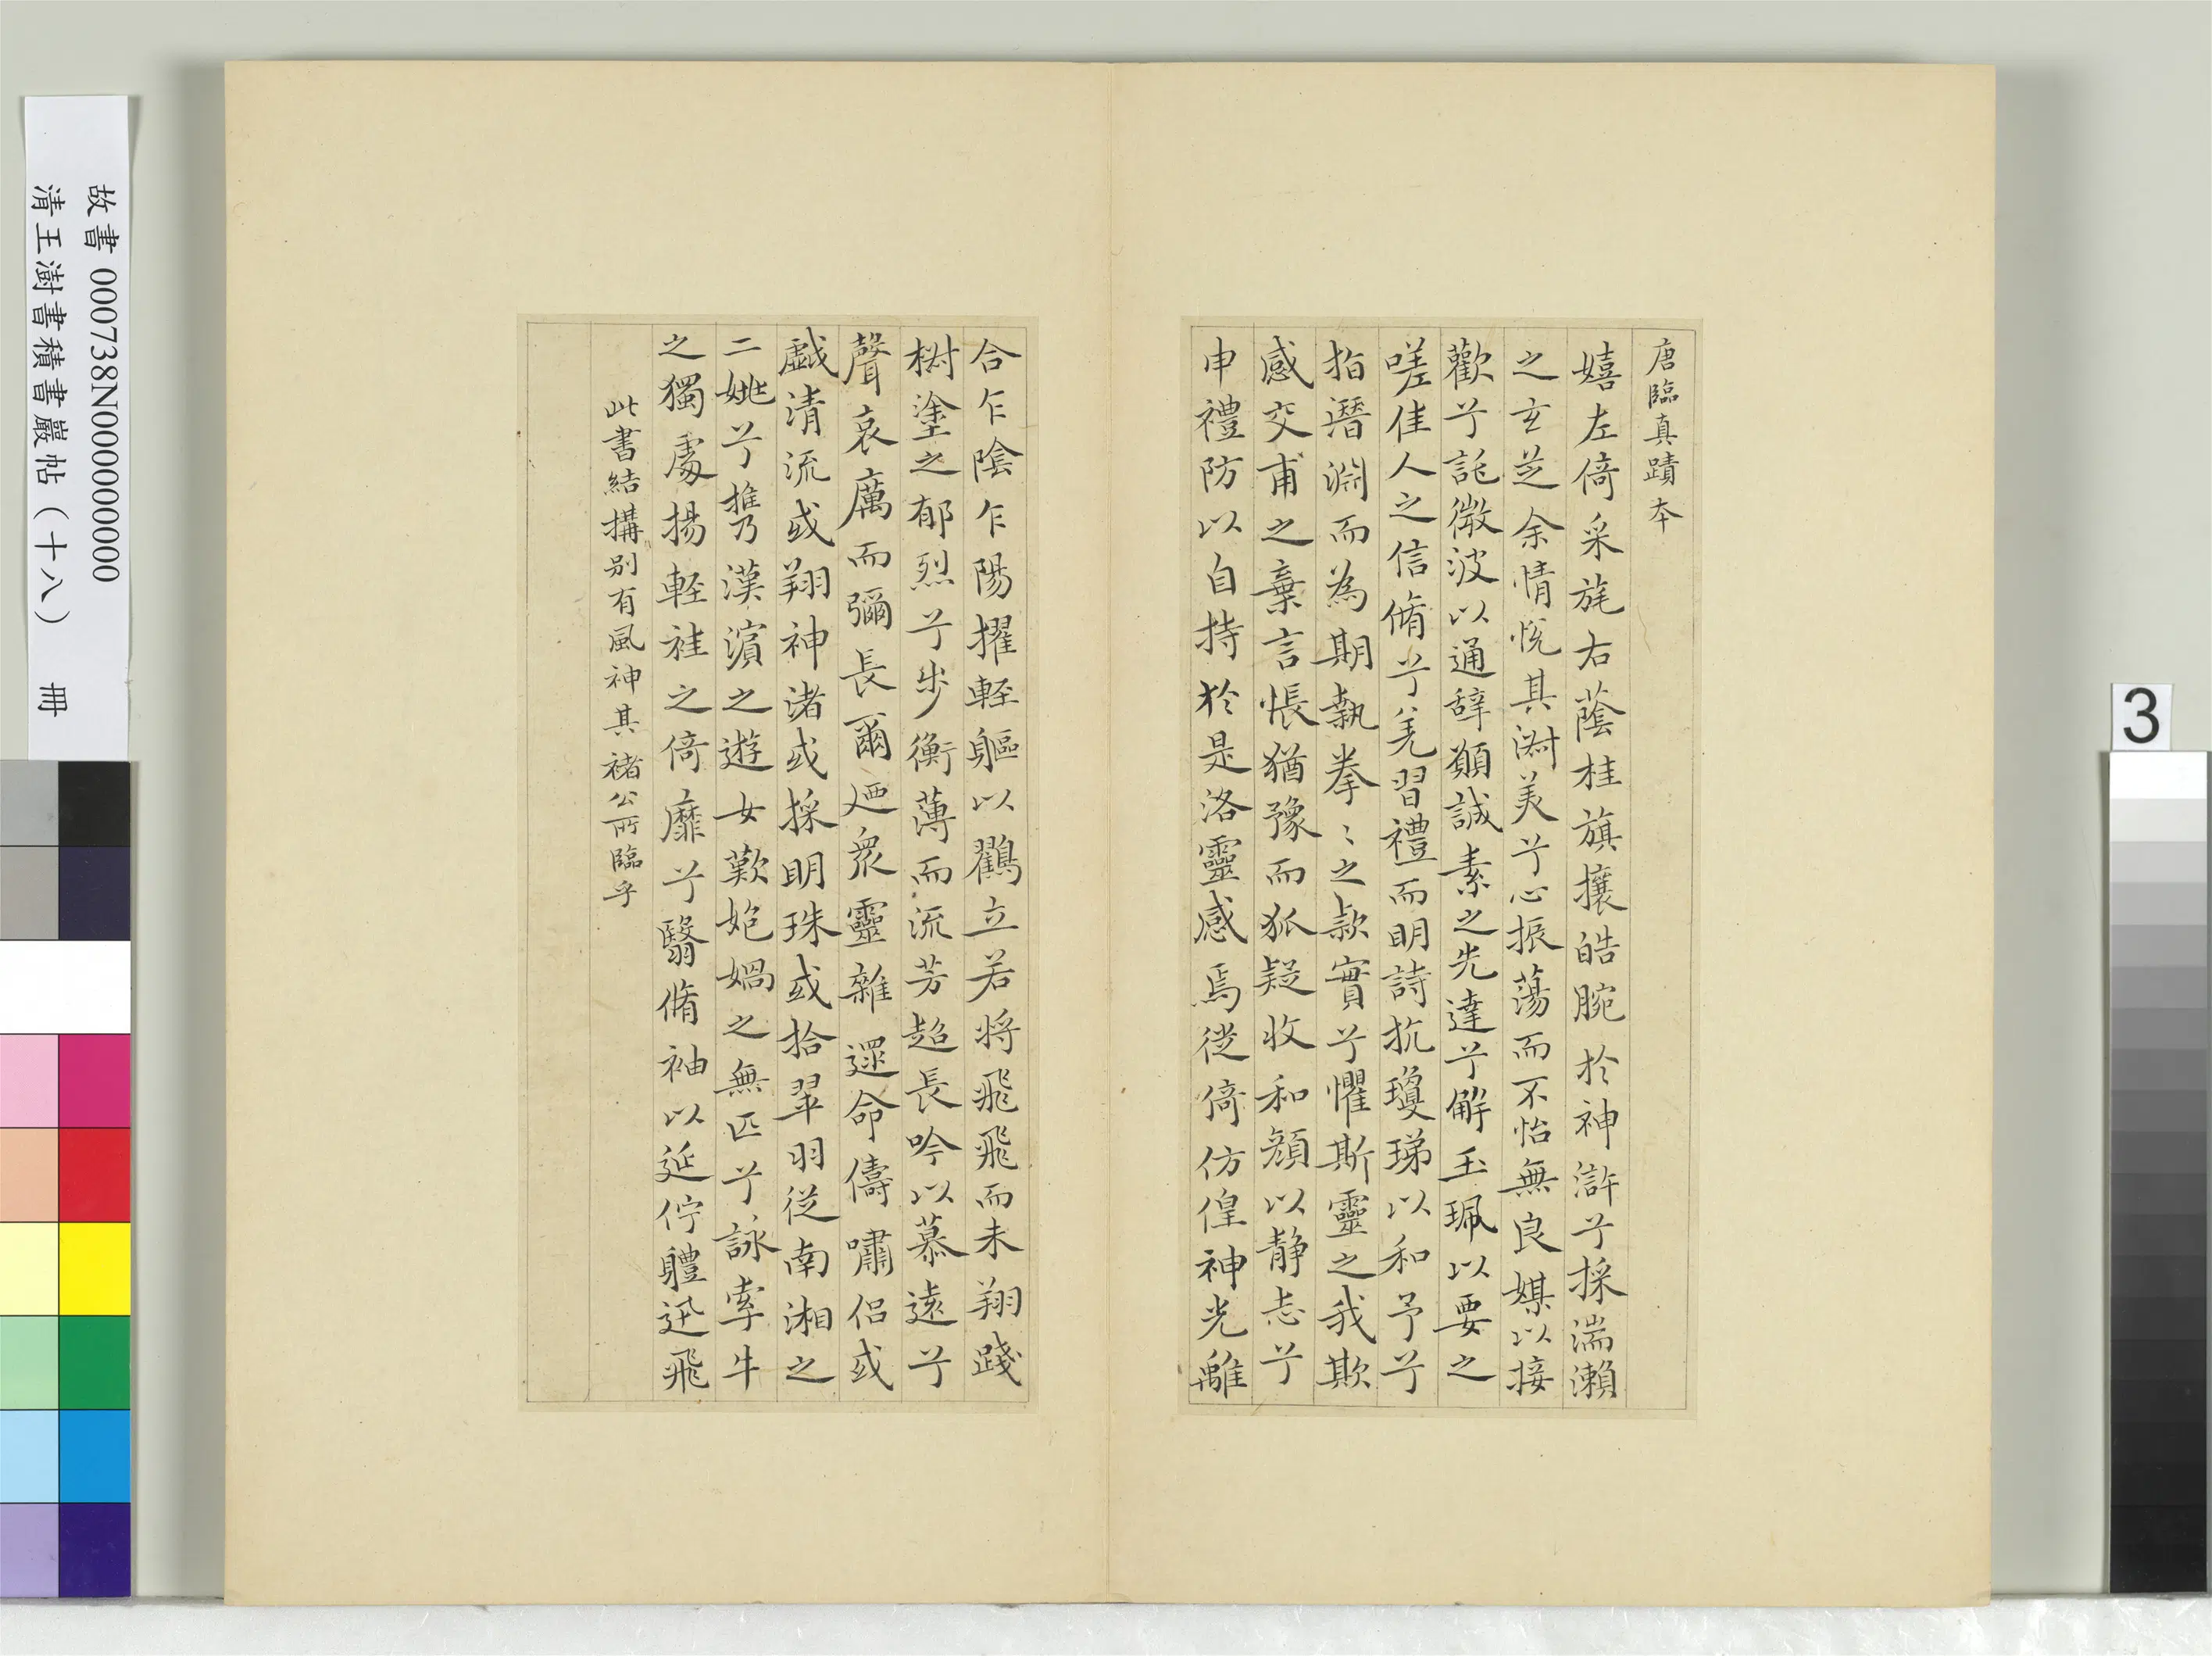 唐臨真蹟本
嬉左倚采旄右蔭桂旗攘皓腕於神滸兮採湍瀨
之玄芝余情悅其淑美兮心振蕩而不怡無良媒以接
歡兮託微波以通辭願誠素之先達兮解玉珮以要之
嗟佳人之信脩兮羌習禮而明詩抗瓊珶以和予兮
指潛淵而為期執拳〻之款實兮懼斯靈之我欺
感交甫之棄言悵猶豫而狐疑收和顏以静志兮
申禮防以自持於是洛靈感焉徙倚仿偟神光離
合乍陰乍陽擢輕軀以鸛立若將飛飛而未翔踐
樹塗之郁烈兮步衡薄而流芳超長吟以慕遠兮
聲哀厲而彌長爾迺衆靈雜遝命儔嘯侶或
戲清流或翔神渚或採明珠或拾翠羽從南湘之
二姚兮攜漢濱之遊女歎匏媧之無匹兮詠牽牛
之獨處揚輕袿之倚靡兮翳脩袖以延佇軆迅飛
此書結搆別有風神其褚公所臨乎
故書 000738N000000000
清王澍書積書巖帖（十八） 冊
3